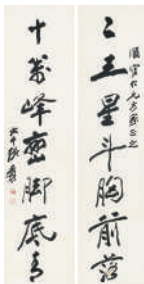 三千星斗胸前落
十萬峰巒脚底青
大千張爰